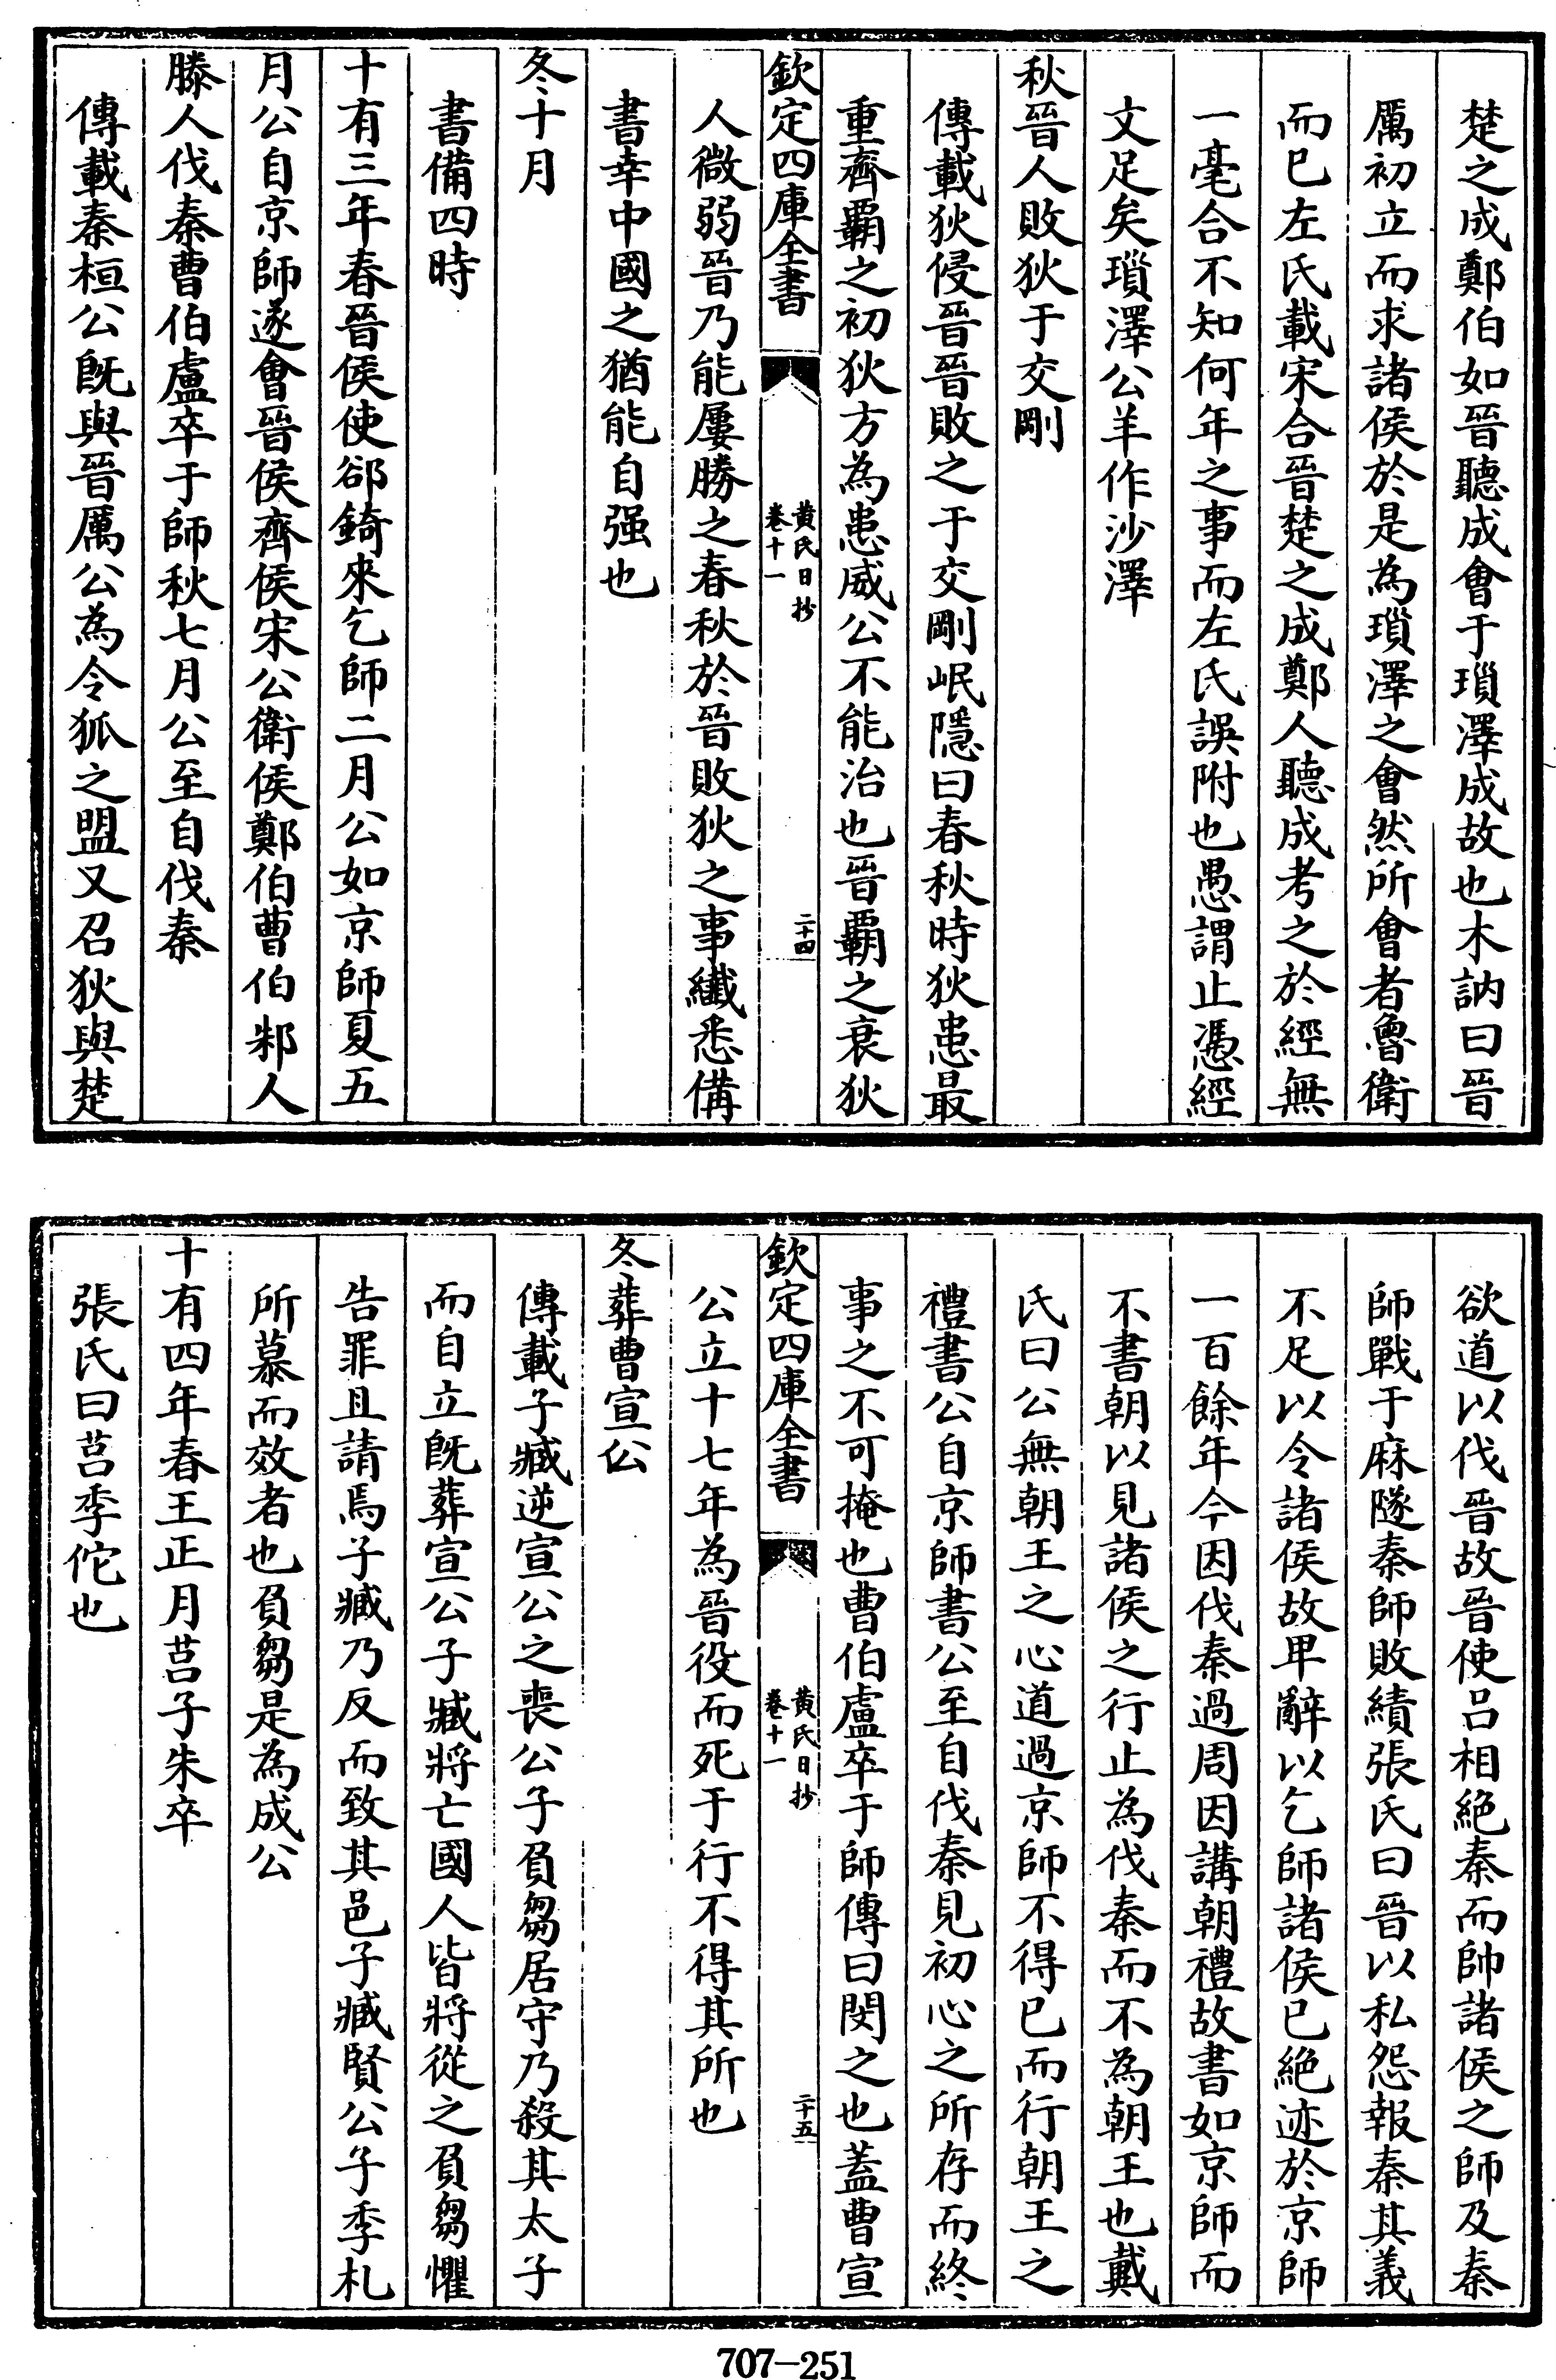 楚之成鄭伯如晉聽成會于瑣澤成故也木訥曰晉
厲初立而求諸侯於是為瑣澤之會然所會者魯衛
而已左氏載宋合晉楚之成鄭人聽成考之於經無
一毫合不知何年之事而左氏誤附也愚謂止憑經
文足矣瑣澤公羊作沙澤
秋晉人敗狄于交剛
傳載狄侵晉晉敗之于交剛岷隱曰春秋時狄患最
重齊覇之初狄方為患威公不能治也晉覇之衰狄
欽定四庫全書
黄氏日抄
卷十一
二十四
人微弱晉乃能屢勝之春秋於晉敗狄之事纎悉備
書幸中國之猶能自强也
冬十月
書備四時
十有三年春晉侯使郤錡來乞師二月公如京師夏五
月公自京師遂會晉侯齊侯宋公衛侯鄭伯曹伯邾人
滕人伐秦曹伯盧卒于師秋七月公至自伐秦
傳載秦桓公既與晉厲公為令狐之盟又召狄與楚
欲道以伐晉故晉使吕相絶秦而帥諸侯之師及秦
師戰于麻隧秦師敗績張氏曰晉以私怨報秦其義
不足以令諸侯故卑辭以乞師諸侯已絶迹於京師
一百餘年今因伐秦過周因講朝禮故書如京師而
不書朝以見諸侯之行止為伐秦而不為朝王也戴
氏曰公無朝王之心道過京師不得已而行朝王之
禮書公自京師書公至自伐秦見初心之所存而終
事之不可掩也曹伯盧卒于師傳曰閔之也蓋曹宣
欽定四庫全書
黄氏日抄
卷十一
二十五
公立十七年為晉役而死于行不得其所也
冬葬曹宣公
傳載子臧逆宣公之喪公子負芻居守乃殺其太子
而自立既葬宣公子臧將亡國人皆將從之負芻懼
告罪且請焉子臧乃反而致其邑子臧賢公子季札
所慕而效者也負芻是為成公
十有四年春王正月莒子朱卒
張氏曰莒季佗也
707-251